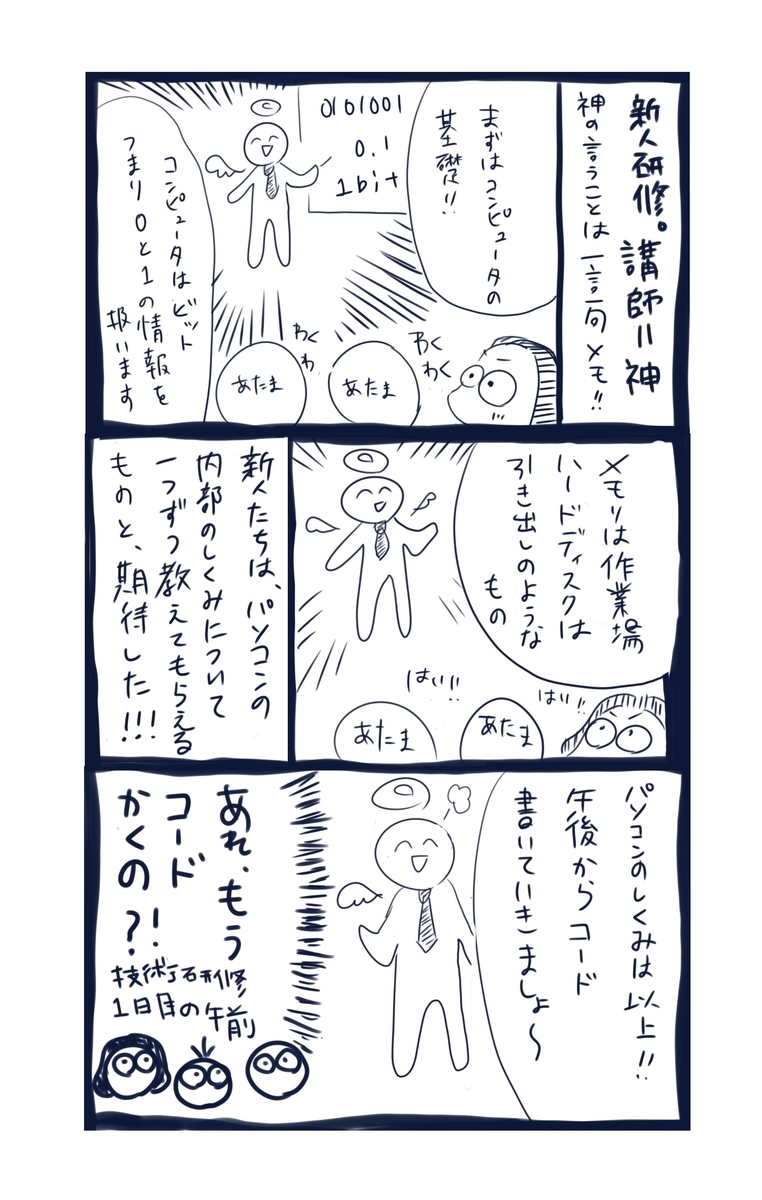 新人研修。講師=神
神の言うことは一言一句メモ!!
まずはコンピュータの
基礎!!
0101001
0.1
1bit
コンピュータはビット
つまり0と1の情報を
扱います
わく
わく
わく
わ
あたま
あたま
メモリは作業場
ハードディスクは
引き出しのような
もの
はい!!
はい!!
あたま
あたま
新人たちは、パソコンの
内部のしくみについて
一つずつ教えてもらえる
ものと、期待した!!!
パソコンのしくみは以上!!
午後からコード
書いていきましょ〜
あれ、もう
コード
かくの?!
技術研修
1日目の午前